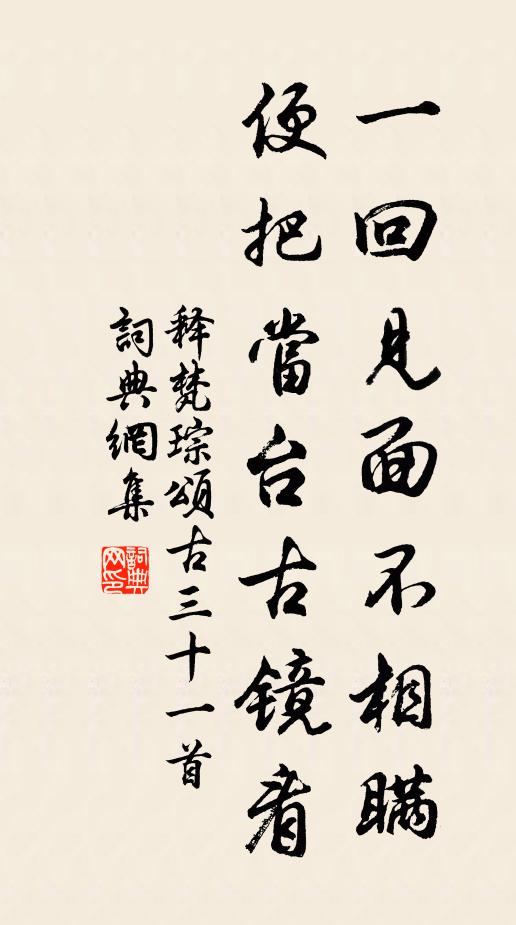 一回见面不相瞒
便把當台古镜看
释梵琮頌古三十一首
詞典網集
詞典网印